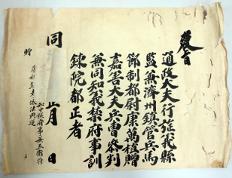 敎旨
通政大夫行旌義縣
監兼濟州鎭管兵馬
節制都尉康萬贈
嘉善大夫兵曹參判
兼同知義禁府事訓
鍊院都正者
同 月 日
贈